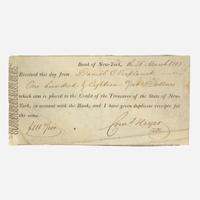 Bank of New-York, the 28 March 1803
Received this day from Daniel C Verplanck
One hundred & Eighteen 70/100 Dollars
which sum is placed to the Credit of the Treasurer of the State of New-
York, in account with the Bank; and I have given duplicate receipts for
the same.